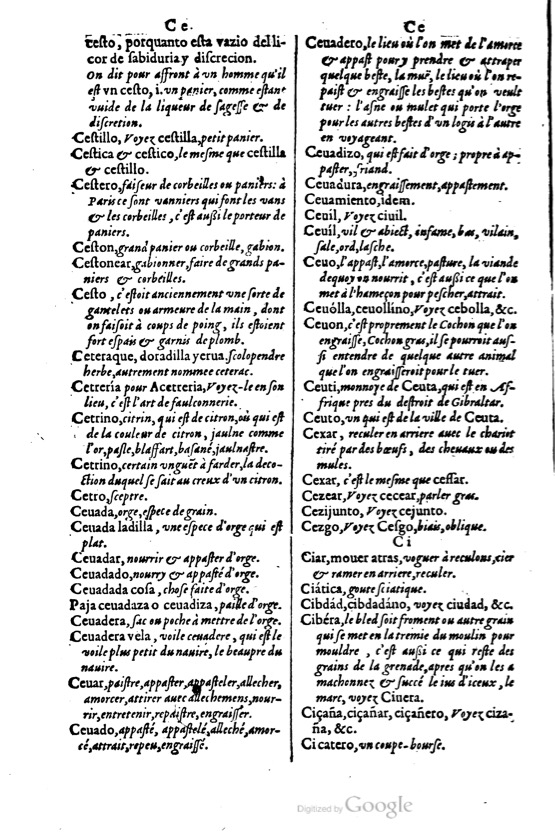 Ce.
cesto, porquanto esta vazio del li-
cor de sabiduria y discrecion.
On dit pour affrôt à vn homme qu'il
est vn cesto, i. vn panier, comme estant
vuide de la liqueur de sagesse & de
discretion.
Cestillo, Voyez cestilla, petit panier.
Cestica & cestico, le mesme que cestilla
& cestillo.
Cestero, faiseur de corbeilles ou paniers: à
Paris ce sont vanniers qui font les vans
& les corbeilles, c'est außi le porteur de
paniers.
Ceston, grand panier ou corbeille, gabion.
Cestonear, gabionner, faire de grands pa-
niers & corbeilles.
Cesto, c'estoit anciennement vne sorte de
gantelets ou armeure de la main, dont
on faisoit à coups de poing, ils estoient
fort espais & garnis de plomb.
Ceteraque, doradilla yerua, scolopendre
herbe, autrement nommee ceterac.
Cetreria pour Acetreria, Voyez-le en son
lieu, c'est l'art de faulconnerie.
Cettrino, citrin, qui est de citron, ou qui est
de la couleur de citron, jaulne comme
l'or, pasle, blaffart, basané, jaulnastre.
Cettrino, certain vnguēt à farder, la deco-
ction duquel se fait au creux d'vn citron.
Cetro, sceptre.
Ceuada, orge, espece de grain.
Ceuada ladilla, vne espece d'orge qui est
plat.
Ceuadar, nourrir & appaster d'orge.
Ceuadado, nourry & appasté d'orge.
Ceuadada cosa, chose faite d'orge.
Paja ceuadaza o ceuadiza, paille d'orge.
Ceuadera, sac ou poche à mettre de l'orge.
Ceuadera vela, voile ceuadere, qui est le
voile plus petit du nauire, le beaupre du
nauire.
Ceuar, paistre, appaster, appasteler, allecher,
amorcer, attirer auec allechemens, nour-
rir, entretenir, repaistre, engraisser.
Ceuado, appasté, appastelé, alleché, amor-
cé, attrait, repeu, engraissé.
Ce
Ceuadero, le lieu où l'on met de l'amorce
& appast pour y prendre & attraper
quelque beste, la muë, le lieu où l'on re-
paist & engraisse les bestes qu'on veult
tuer: l'asne ou mulet qui porte l'orge
pour les autres bestes d'vn logis à l'autre
en voyageant.
Ceuadizo, qui est fait d'orge; propre à ap-
paster, friand.
Ceuadura, engraissement, appastement.
Ceuamiento, idem.
Ceuil, Voyez ciuil.
Ceuil, vil & abiect, infame, bas, vilain,
sale, ord, lasche.
Ceuo, l'appast, l'amorce, pasture, la viande
dequoy on nourrit, c'est außi ce que l'on
met à l'hameçon pour pescher, attrait.
Ceuólla, ceuollino, Voyez cebolla, &c.
Ceuon, c'est proprement le Cochon que l'on
engraisse, Cochon gras, il se pourroit aus-
si entendre de quelque autre animal
que l'on engraisseroit pour le tuer.
Ceuti, monnoye de Ceuta, qui est en Af-
frique pres du destroit de Gibraltar.
Ceuto, vn qui est de la ville de Ceuta.
Cexar, reculer en arriere auec le chariot
tiré par des bœufs, des cheuaux ou des
mules.
Cexar, c'est le mesme que cessar.
Cezear, Voyez cecear, parler gras.
Cezijunto, Voyez cejunto.
Cezgo, Voyez Cesgo, biais, oblique.
Ci
Ciar, mouer atras, voguer à reculons, cier
& ramer en arriere, reculer.
Ciática, goute sciatique.
Cibdád, cibdadáno, voyez ciudad, &c.
Cibéra, le bled soit froment ou autre grain
qui se met en la tremie du moulin pour
mouldre, c'est außi ce qui reste des
grains de la grenade, apres qu'on les a
machonnez & succé le ius d'iceux, le
marc, voyez Ciuera.
Ciçaña, ciçañar, ciçañero, Voyez ciza-
ña, &c.
Cicatero, vn coupe-bourse.
Digitized by Google